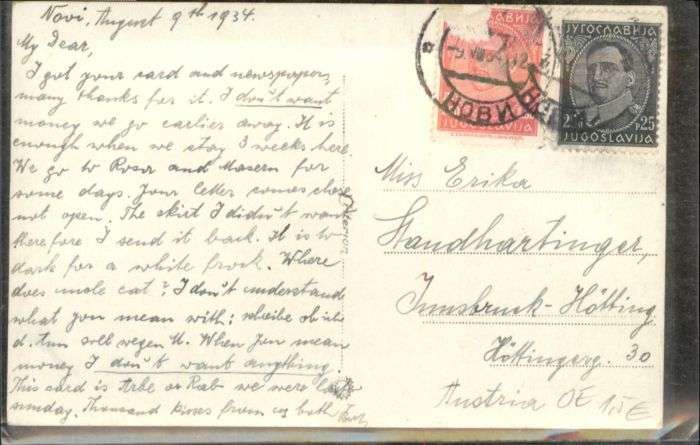 Novi, August 9th 1934.
My Dear,
I got your card and newspaper,
many thanks for it. I don't want
money we go earlier away. It is
enough when we stay 3 weeks here
We go to Rosa and Masern for
some days. Your letter comes
not open. The skirt I didn't want
therefore I send it back. It is to
dark for a white frock. Where
does uncle eat? I don't understand
what you mean with:
soll wegen U. When you mean
money I don't want anything.
This card is Arbe or Rab we were
sunday. Thousand kisses from us both
ЈУГОСЛАВИЈА
JUGOSLAVIJA
НОВИ
ЈУГОСЛАВИЈА
P. 25
JUGOSLAVIJA
Miss Erika
Standhartinger,
Innsbruck-Hötting
Höttingerg. 30
Austria OE 1,5€